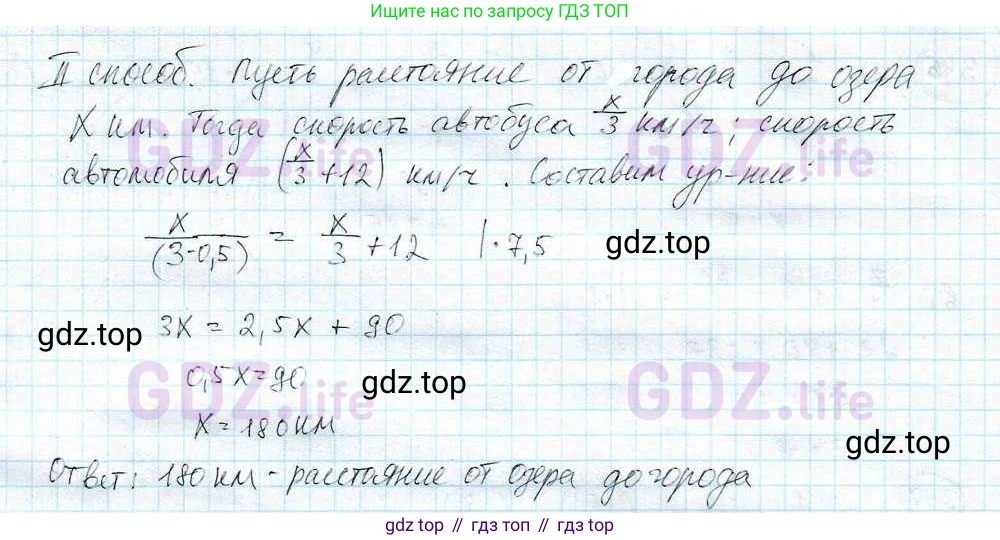 Ищите нас по запросу ГДЗ ТОП
II способ. Пусть расстояние от города до озера
X км. Тогда скорость автобуса x/3 км/ч; скорость
автомобиля (x/3 + 12) км/ч. Составим ур-ние:
x/(3-0,5) = x/3 + 12 |· 7,5
gdz.top
3x = 2,5x + 90
gdz.top
0,5x = 90
gdz.top
x = 180 км
gdz.top
Ответ: 180 км - расстояние от озера до города
GDZ.life GDZ.life
GDZ.life GDZ.life
gdz.top // гдз топ // гдз.top